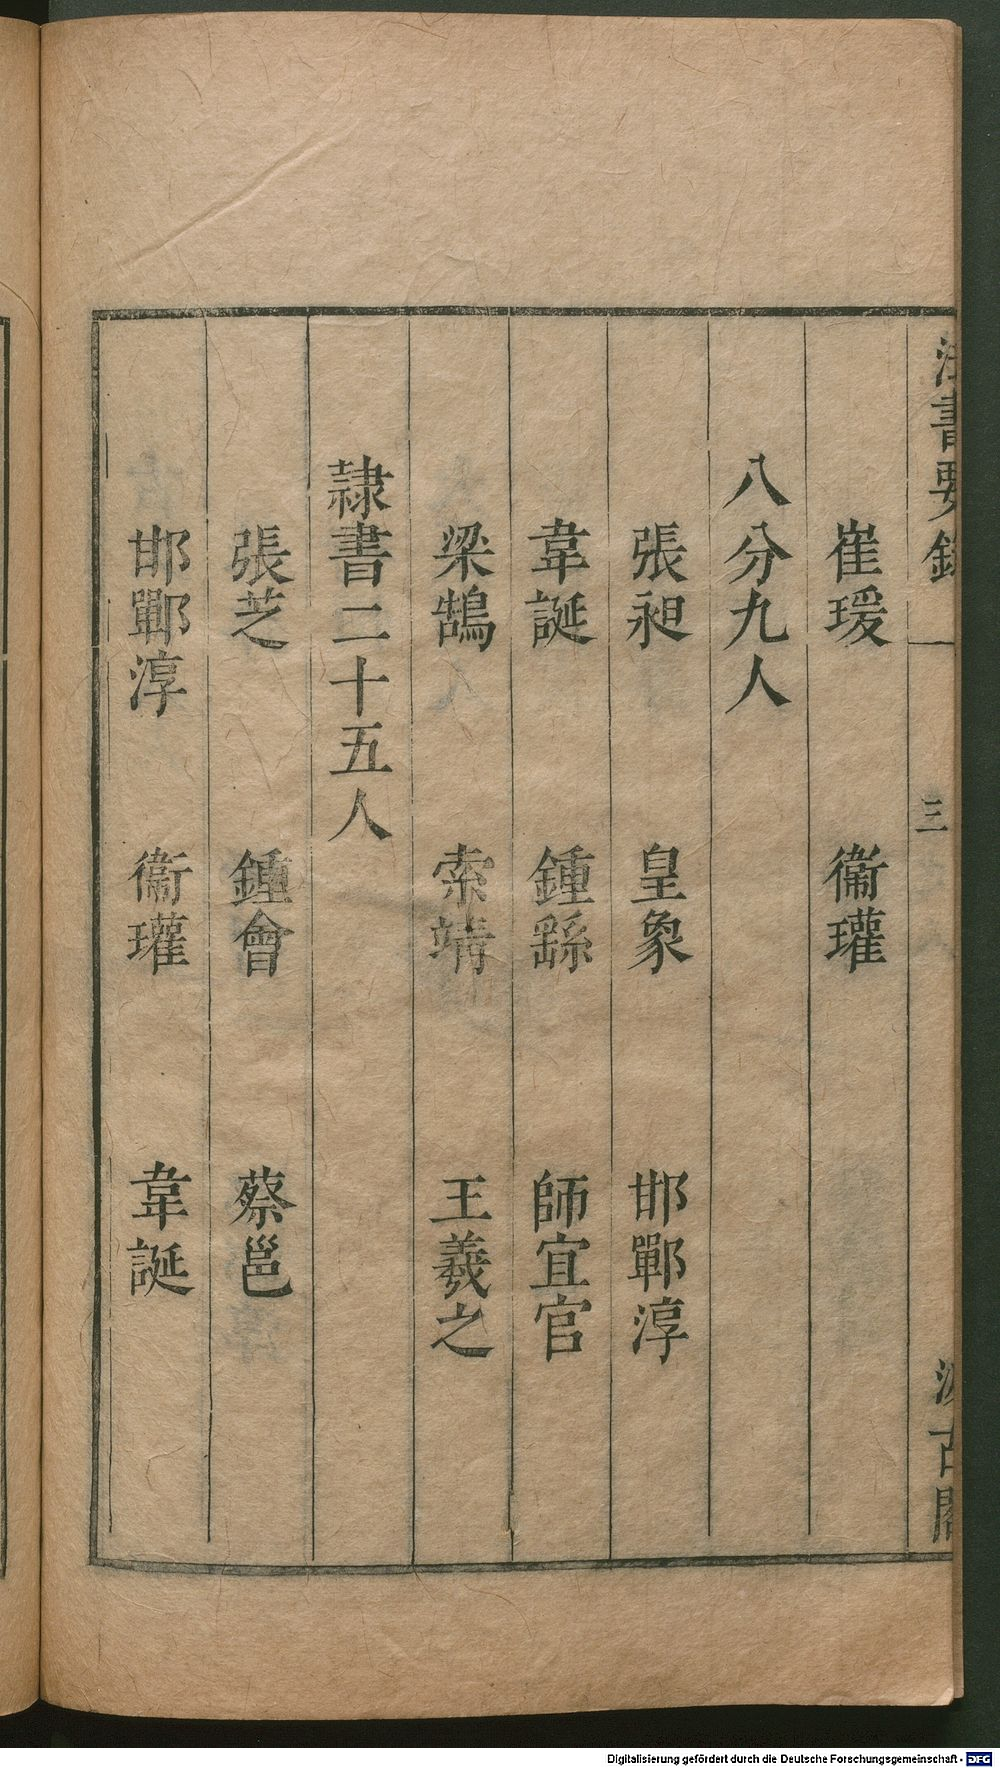 法書要錄 一 三 汲古閣
崔瑗 衞瓘
八分九人
張昶 皇象 邯鄲淳
韋誕 鍾繇 師宜官
梁鵠 索靖 王羲之
隸書二十五人
張芝 鍾會 蔡邕
邯鄲淳 衞瓘 韋誕
Digitalisierung gefördert durch die Deutsche Forschungsgemeinschaft - DFG